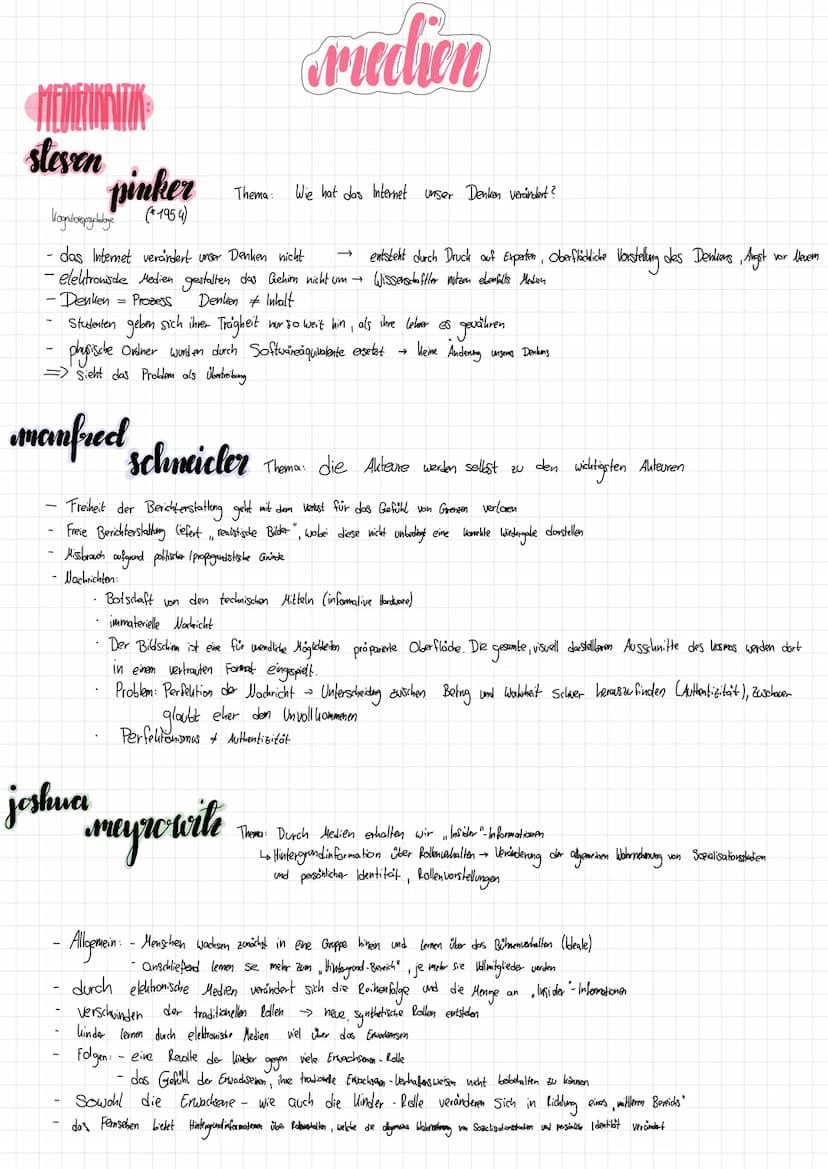 medien
MEDIENKRITIK:
steven
pinker
Thema: Wie hat das Internet unser Denken verändert?
Kognitionspsychologe (*1954)
- das Internet verändert unser Denken nicht → entsteht durch Druck auf Experten, Oberflächliche Vorstellung des Denkens, Angst vor Neuem
- elektronische Medien gestalten das Gehirn nicht um → Wissenschaftler nutzen ebenfalls Medien
- Denken = Prozess Denken ≠ Inhalt
- Studenten geben sich ihrer Trägheit nur so weit hin, als ihre Lehrer es gewähren
- physische Ordner wurden durch Softwareäquivalente ersetzt → keine Änderung unseres Denkens
=> Sieht das Problem als Übertreibung
manfred
schneider Thema: die Akteure werden selbst zu den wichtigsten Akteuren
- Freiheit der Berichterstattung geht mit dem Verlust für das Gefühl von Grenzen verloren
- Freie Berichterstattung liefert „realistische Bilder", wobei diese nicht unbedingt eine korrekte Wiedergabe darstellen
- Missbrauch aufgrund politischer/propagandistische Gründe
- Nachrichten:
· Botschaft von den technischen Mitteln (informative Hardware)
· immaterielle Nachricht
· Der Bildschirm ist eine für unendliche Möglichkeiten präparierte Oberfläche. Die gesamte, visuell darstellbaren Ausschnitte des Kosmos werden dort
in einem vertrauten Format eingespielt.
· Problem: Perfektion der Nachricht → Unterscheidung zwischen Betrug und Wahrheit schwer herauszufinden (Authentizität), Zuschauer
glaubt eher den Unvollkommenen
· Perfektionismus ≠ Authentizität
joshua
meyrowitz Thema: Durch Medien erhalten wir „Insider"-Informationen
↳ Hintergrundinformation über Rollenverhalten → Veränderung der allgemeinen Wahrnehmung von Sozialisationsstadien
und persönlicher Identität, Rollenvorstellungen
- Allgemein: - Menschen wachsen zunächst in eine Gruppe hinein und lernen über das Bühnenverhalten (Ideale)
- anschließend lernen sie mehr zum „Hintergrund-Bereich", je mehr sie Vollmitglieder werden
- durch elektronische Medien verändert sich die Reihenfolge und die Menge an „Insider"-Informationen
- verschwinden der traditionellen Rollen → neue, synthetische Rollen entstehen
- Kinder lernen durch elektronische Medien viel über das Erwachsensein
- Folgen: - eine Revolte der Kinder gegen viele Erwachsenen-Rolle
- das Gefühl der Erwachsenen, ihre traditionelle Erwachsenen-Verhaltensweisen nicht beibehalten zu können
- Sowohl die Erwachsene - wie auch die Kinder-Rolle verändern sich in Richtung eines „mittleren Bereichs"
- das Fernsehen bietet Hintergrundinformationen über Rollenverhalten, welche die allgemeine Wahrnehmung von Sozialisationsstadien und persönliche Identität verändert